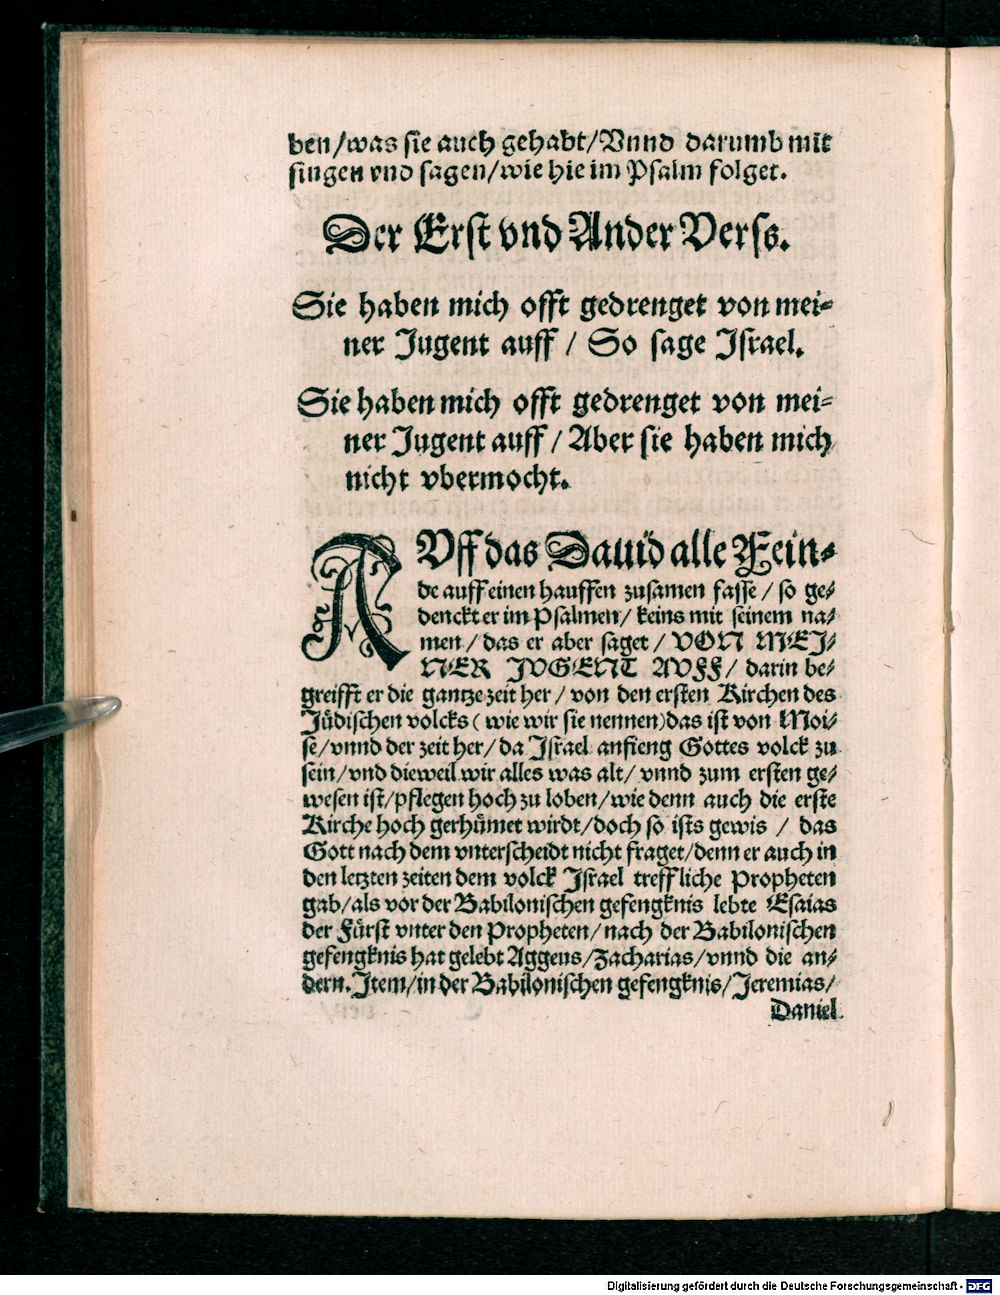 ben/was sie auch gehabt/Vnnd darumb mit
singen vnd sagen/wie hie im Psalm folget.
Der Erst vnd Ander Verss.
Sie haben mich offt gedrenget von mei=
ner Jugent auff / So sage Israel.
Sie haben mich offt gedrenget von mei=
ner Jugent auff / Aber sie haben mich
nicht vbermocht.
AVff das Dauid alle Fein=
de auff einen hauffen zusamen fasse / so ge=
denckt er im Psalmen/ keins mit seinem na=
men / das er aber saget / VON MEJ=
NER JVGENT AVFF/ darin be=
greifft er die gantze zeit her / von den ersten Kirchen des
Jüdischen volcks ( wie wir sie nennen)das ist von Moi=
se/vnnd der zeit her/ da Israel anfieng Gottes volck zu
sein/vnd dieweil wir alles was alt/ vnnd zum ersten ge=
wesen ist/pflegen hoch zu loben/wie denn auch die erste
Kirche hoch gerhümet wirdt/doch so ists gewis / das
Gott nach dem vnterscheidt nicht fraget/denn er auch in
den letzten zeiten dem volck Israel treffliche Propheten
gab/als vor der Babilonischen gefengknis lebte Esaias
der Fürst vnter den Propheten/ nach der Babilonischen
gefengknis hat gelebt Aggeus/Zacharias/vnnd die an=
dern. Item/in der Babilonischen gefengknis/Jeremias/
Daniel
Digitalisierung gefördert durch die Deutsche Forschungsgemeinschaft - DFG